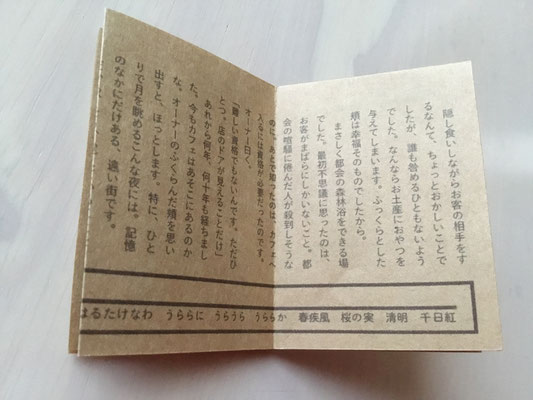 隠し食いしながらお客の相手をす
るなんて、ちょっとおかしいことで
したが、誰も咎めるひともないよう
でした。なんならお土産におやつを
与えてしまいます。ふっくらとした
頬は幸福そのものでしたから。
まさしく都会の森林浴をできる場
でした。最初不思議に思ったのは、
お客がまばらにしかいないこと。都
会の喧騒に倦んだ人が殺到しそうな
のに。あとで知ったのは、カフェへ
入るには資格が必要だったのです。
オーナー曰く、
「難しい資格でもないんです。ただひ
とつ、店のドアが見えることだけ」
あれから何年、何十年も経ちまし
た。今もカフェはあそこにあるのか
な。オーナーのふくらんだ頬を思い
出すと、ほっとします。特に、ひと
りで月を眺めるこんな夜には。記憶
のなかにだけある、遠い街です。
はるたけなわ うららに うらうら うららか 春疾風 桜の実 清明 千日紅